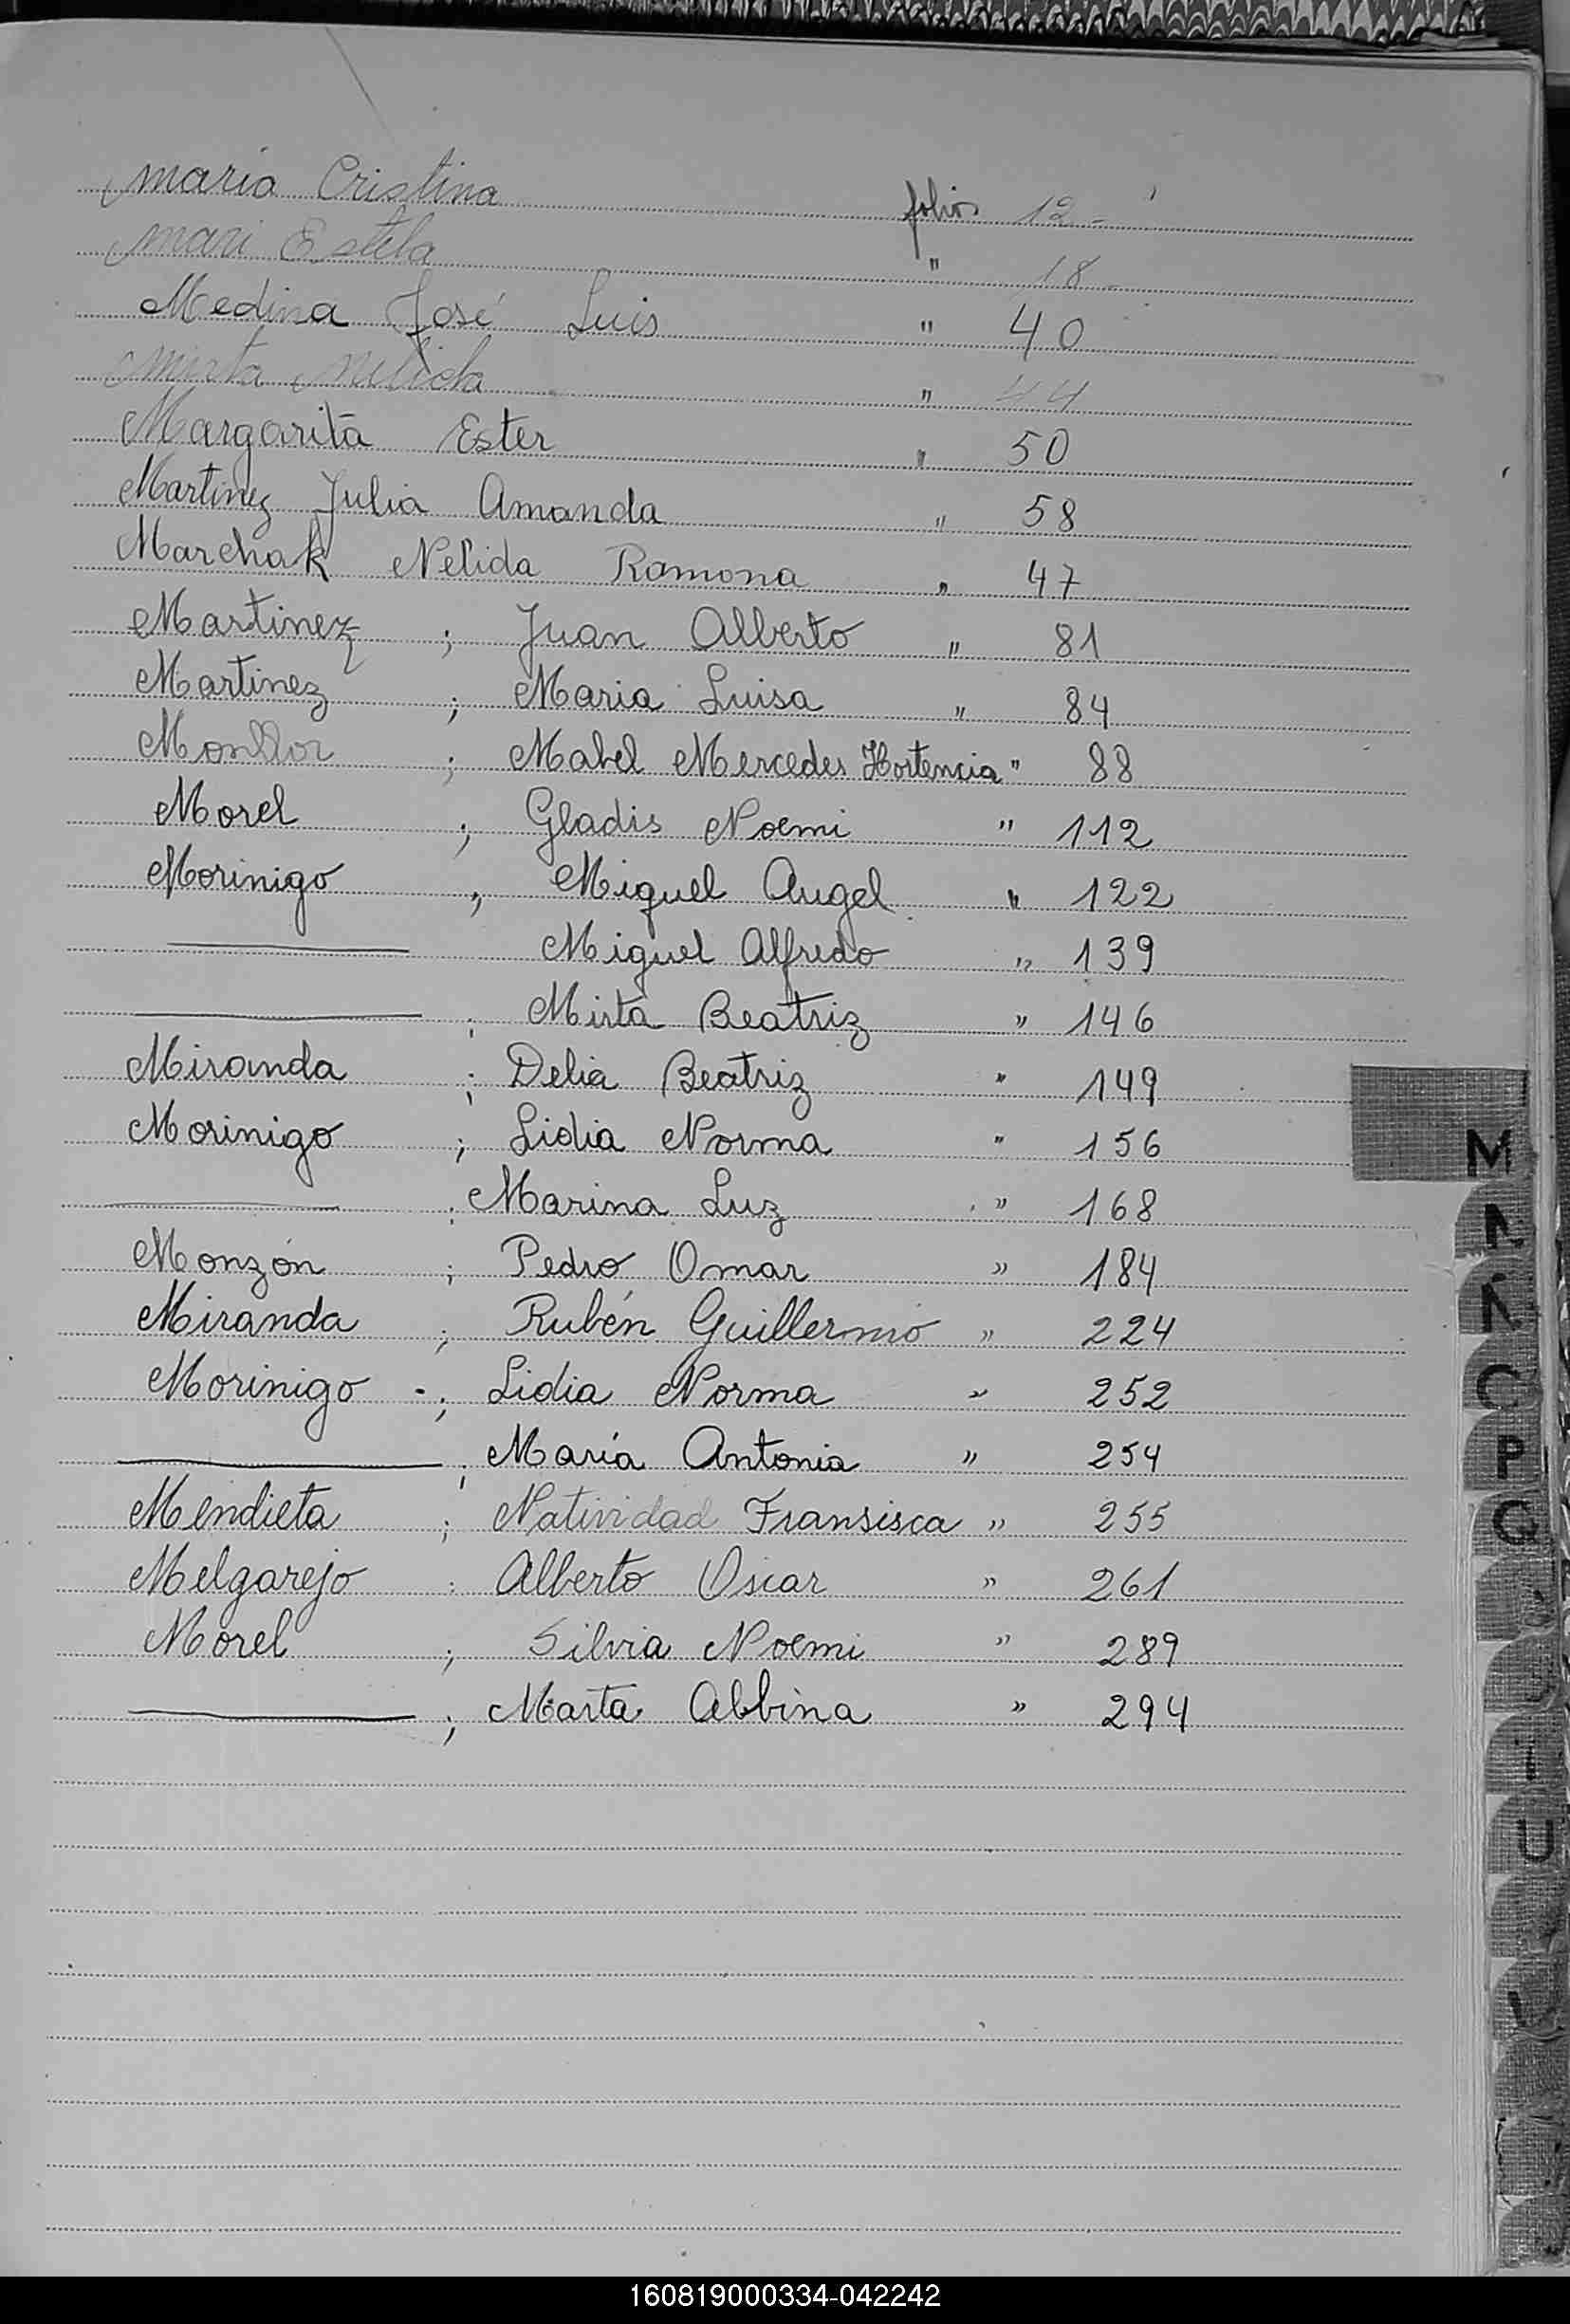 Maria Cristina folios 12-
Mari Estela " 18-
Medina José Luis " 40
Mirta Nelida " 44
Margarita Ester " 50
Martinez Julia Amanda " 58
Marchak Nelida Ramona " 47
Martinez ; Juan Alberto " 81
Martinez ; Maria Luisa " 84
Monllor ; Mabel Mercedes Hortencia " 88
Morel ; Gladis Noemi " 112
Morinigo , Miguel Angel " 122
——— Miguel Alfredo " 139
——— ; Mirta Beatriz " 146
Miranda ; Delia Beatriz " 149
Morinigo ; Lidia Norma " 156
——— ; Marina Luz " 168
Monzón ; Pedro Omar " 184
Miranda ; Rubén Guillermo " 224
Morinigo -; Lidia Norma " 252
——— ; María Antonia " 254
Mendieta ; Natividad Fransisca " 255
Melgarejo ; Alberto Oscar " 261
Morel ; Silvia Noemi " 289
——— ; Marta Albina " 294
M
N
Ñ
O
P
Q
T
U
160819000334-042242